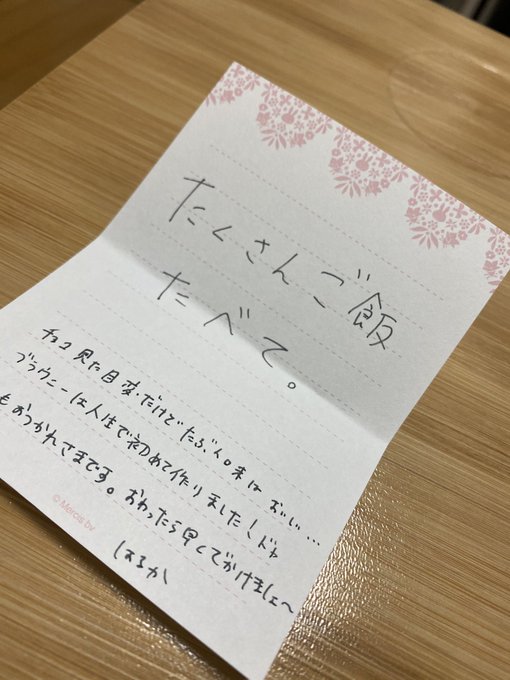 たくさんご飯
たべて。
チョコ 見た目 変だけど たぶん。味は おいし…
ブラウニーは人生で初めて作りました
もおつかれさまです。おわったら早くでかけましょ〜
はるか
© Mercis bv